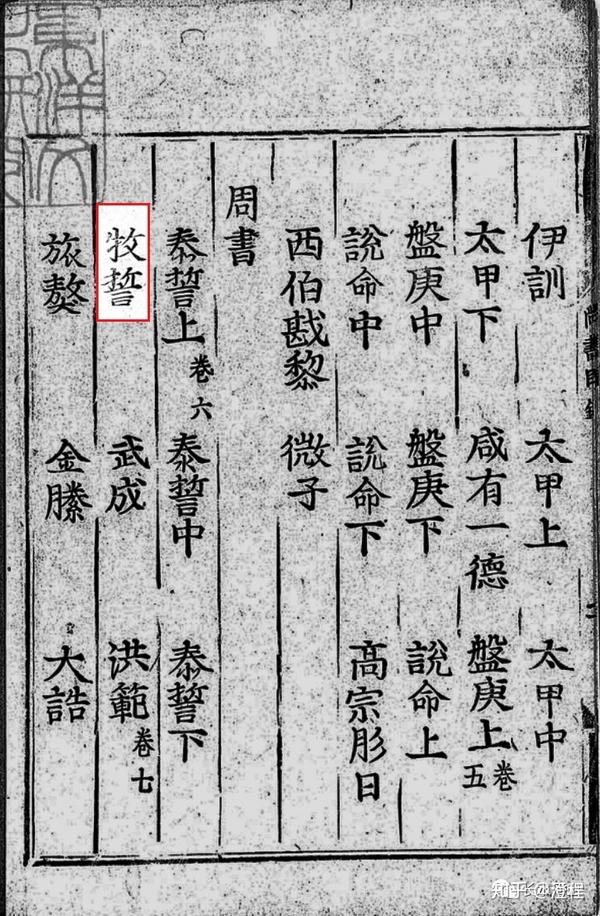 伊訓 太甲上 太甲中
太甲下 咸有一德 盤庚上 卷五
盤庚中 盤庚下 說命上
說命中 說命下 高宗肜日
西伯戡黎 微子
周書
泰誓上 卷六 泰誓中 泰誓下
牧誓 武成 洪範 卷七
旅獒 金縢 大誥
尚書目錄
知乎 @澄程